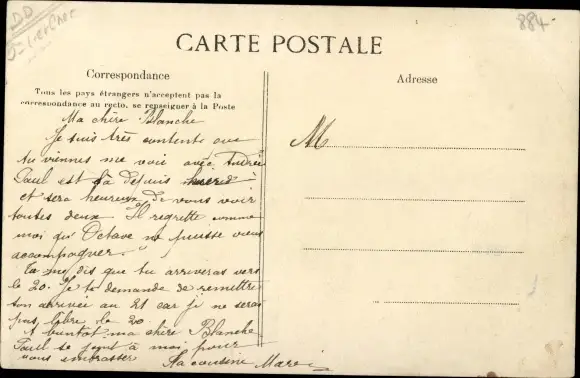 DD
884
CARTE POSTALE
Correspondance
Adresse
Tous les pays étrangers n'acceptent pas la
correspondance au recto, se renseigner à la Poste
M
Ma chère Blanche
Je suis très contente que
tu viennes me voir avec André
Paul est là depuis
et sera heureux de vous voir
toutes deux. Il regrette comme
moi qu'Octave ne puisse vous
accompagner.
Tu me dis que tu arriveras vers
le 20. Je te demande de remettre
ton arrivée au 21 car je ne serai
pas libre le 20.
A bientot ma chère Blanche
Paul se joint à moi pour
vous embrasser
Ta cousine Marie